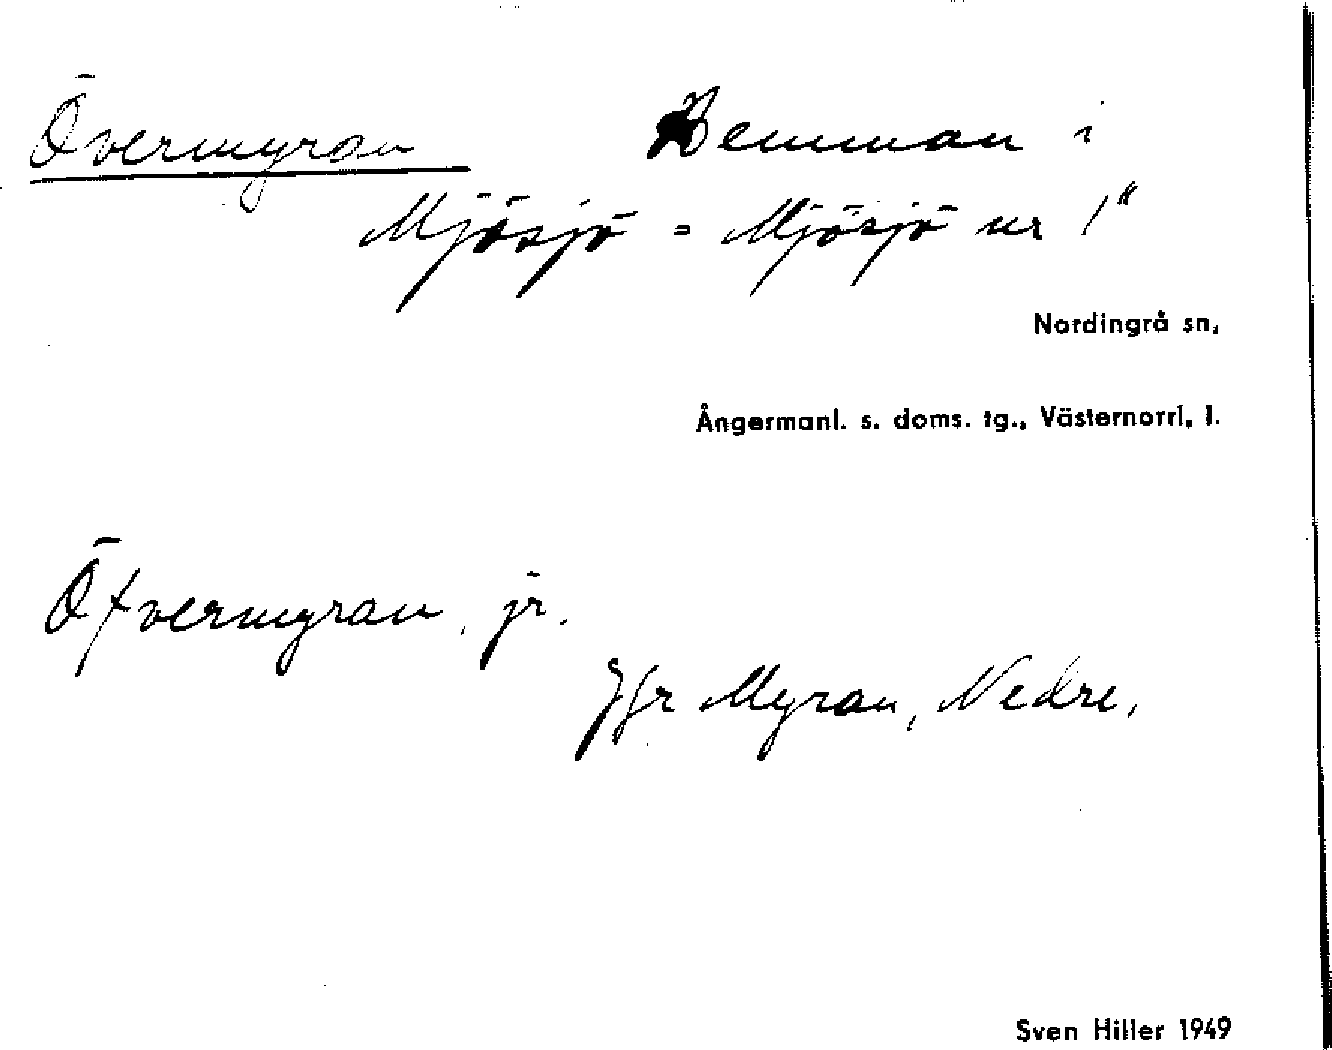 Övermyran Hemman i
Mjösjö = Mjösjö nr 1"
Nordingrå sn,
Ångermanl. s. doms. tg., Västernorrl. l.
Öfvermyran, jr.
Jfr Myran, Nedre,
Sven Hiller 1949